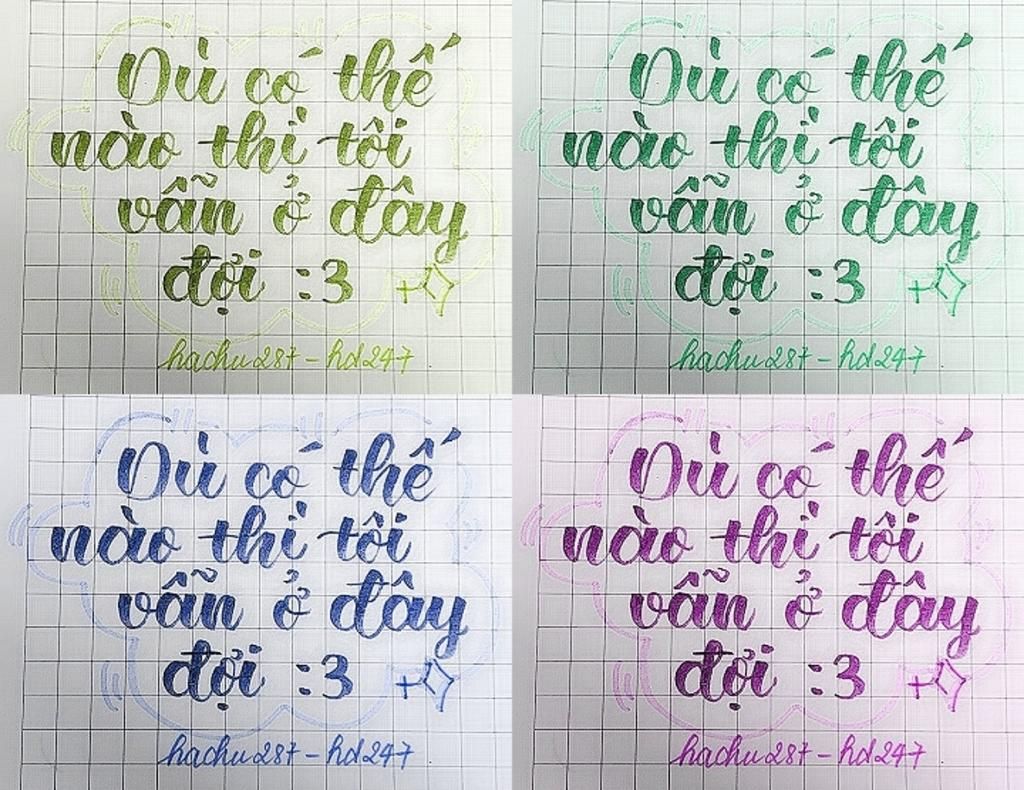 Dù có thế
nào thì tôi
vẫn ở đây
đợi :3
hachu287 - hd247
Dù có thế
nào thì tôi
vẫn ở đây
đợi :3
hachu287 - hd247
Dù có thế
nào thì tôi
vẫn ở đây
đợi :3
hachu287 - hd247
Dù có thế
nào thì tôi
vẫn ở đây
đợi :3
hachu287 - hd247